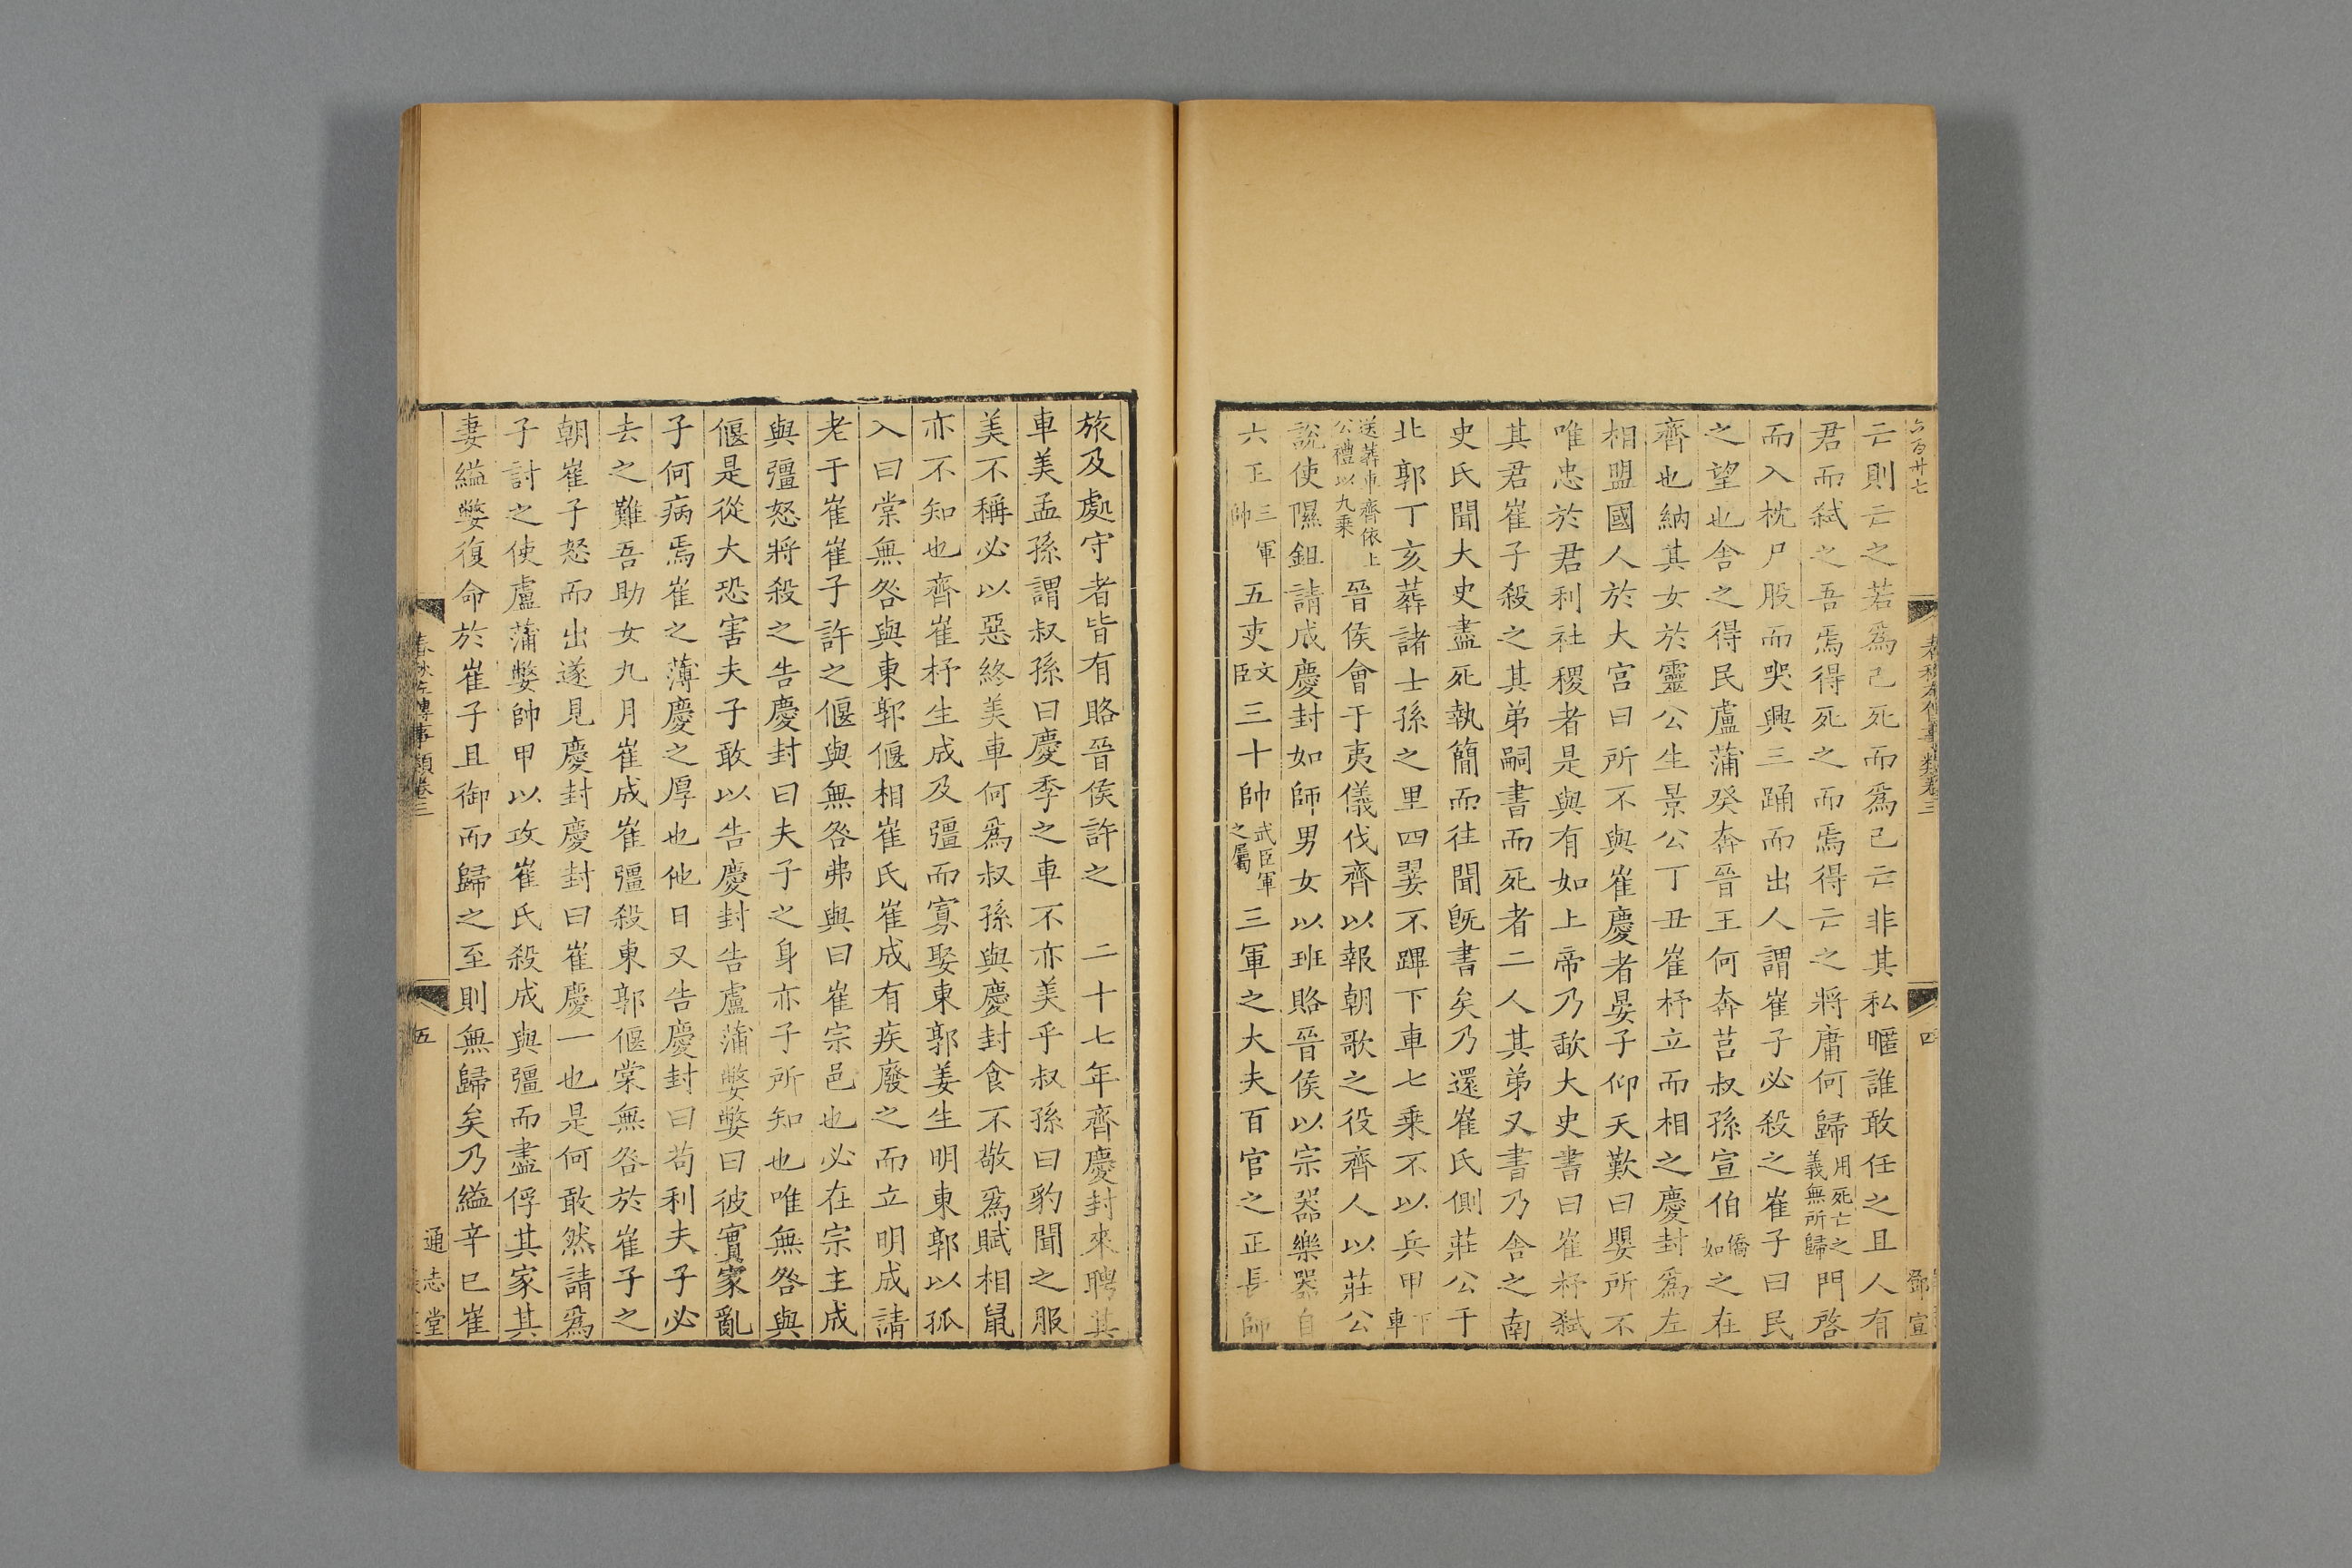 亡則亡之若爲己死而爲己亡非其私暱誰敢任之且人有
君而弑之吾焉得死之而焉得亡之將庸何歸用死亡之義無所歸門啓
而入枕尸股而哭興三踊而出人謂崔子必殺之崔子曰民
之望也舍之得民盧蒲癸奔晉王何奔莒叔孫宣伯僑如之在
齊也納其女於靈公生景公丁丑崔杼立而相之慶封爲左
相盟國人於大宮曰所不與崔慶者晏子仰天歎曰嬰所不
唯忠於君利社稷者是與有如上帝乃歃大史書曰崔杼弑
其君崔子殺之其弟嗣書而死者二人其弟又書乃舍之南
史氏聞大史盡死執簡而往聞旣書矣乃還崔氏側莊公于
北郭丁亥葬諸士孫之里四翣不蹕下車七乘不以兵甲下車
送葬車齊依上公禮以九乘晉侯會于夷儀伐齊以報朝歌之役齊人以莊公
說使隰鉏請成慶封如師男女以班賂晉侯以宗器樂器自
六正三軍帥五吏文臣三十帥武臣軍之屬三軍之大夫百官之正長師
旅及處守者皆有賂晉侯許之 二十七年齊慶封來聘其
車美孟孫謂叔孫曰慶季之車不亦美乎叔孫曰豹聞之服
美不稱必以惡終美車何爲叔孫與慶封食不敬爲賦相鼠
亦不知也齊崔杼生成及彊而寡娶東郭姜生明東郭以孤
入曰棠無咎與東郭偃相崔氏崔成有疾廢之而立明成請
老于崔崔子許之偃與無咎弗與曰崔宗邑也必在宗主成
與彊怒將殺之告慶封曰夫子之身亦子所知也唯無咎與
偃是從大恐害夫子敢以告慶封告盧蒲嫳嫳曰彼實家亂
子何病焉崔之薄慶之厚也他日又告慶封曰苟利夫子必
去之難吾助女九月崔成崔彊殺東郭偃棠無咎於崔子之
朝崔子怒而出遂見慶封慶封曰崔慶一也是何敢然請爲
子討之使盧蒲嫳帥甲以攻崔氏殺成與彊而盡俘其家其
妻縊嫳復命於崔子且御而歸之至則無歸矣乃縊辛巳崔
春秋左傳事類卷三
五
通志堂